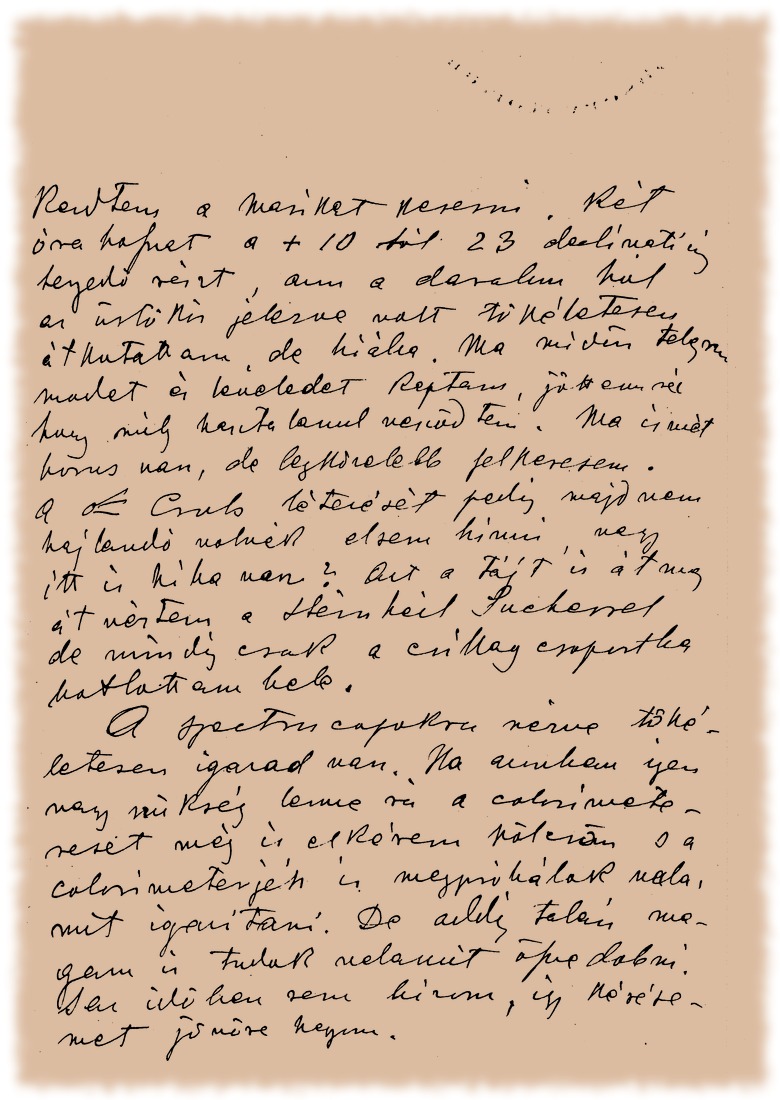 Kezdtem a masikat keresni. Két
óra hosszat a +10 től 23 declinatióig
terjedő részt, ann a darabon hol
az üstökös jelezve volt tökéletesen
átkutattam, de hiába. Ma midőn telegram
modat és leveledet kaptam, jöttem rá
hogy mily haszta lanul vesződtem. Ma ismét
borus van, de legközelebb felkeresem.
a Crub létezését pedig majdnem
hajlandó volnék elsem hinni vagy
itt is hiba van? Azt a tájt is át meg
át néztem a Steinheil Sucherrel
de mindig csak a csillag csoportba
botlottam bele.
A spectruscopokra nézve töké-
letesen igazad van. Ha azonban igen
nagy szükség lenne rá a colorimete-
resét még is elkérem kölcsön s a
colorimeterjét is megpróbálok vala,
mit igazitani. De addig talán ma-
gam is tudok valamit össze dobni.
Sem időben sem birom, így kérése-
met jövőre hagyom.